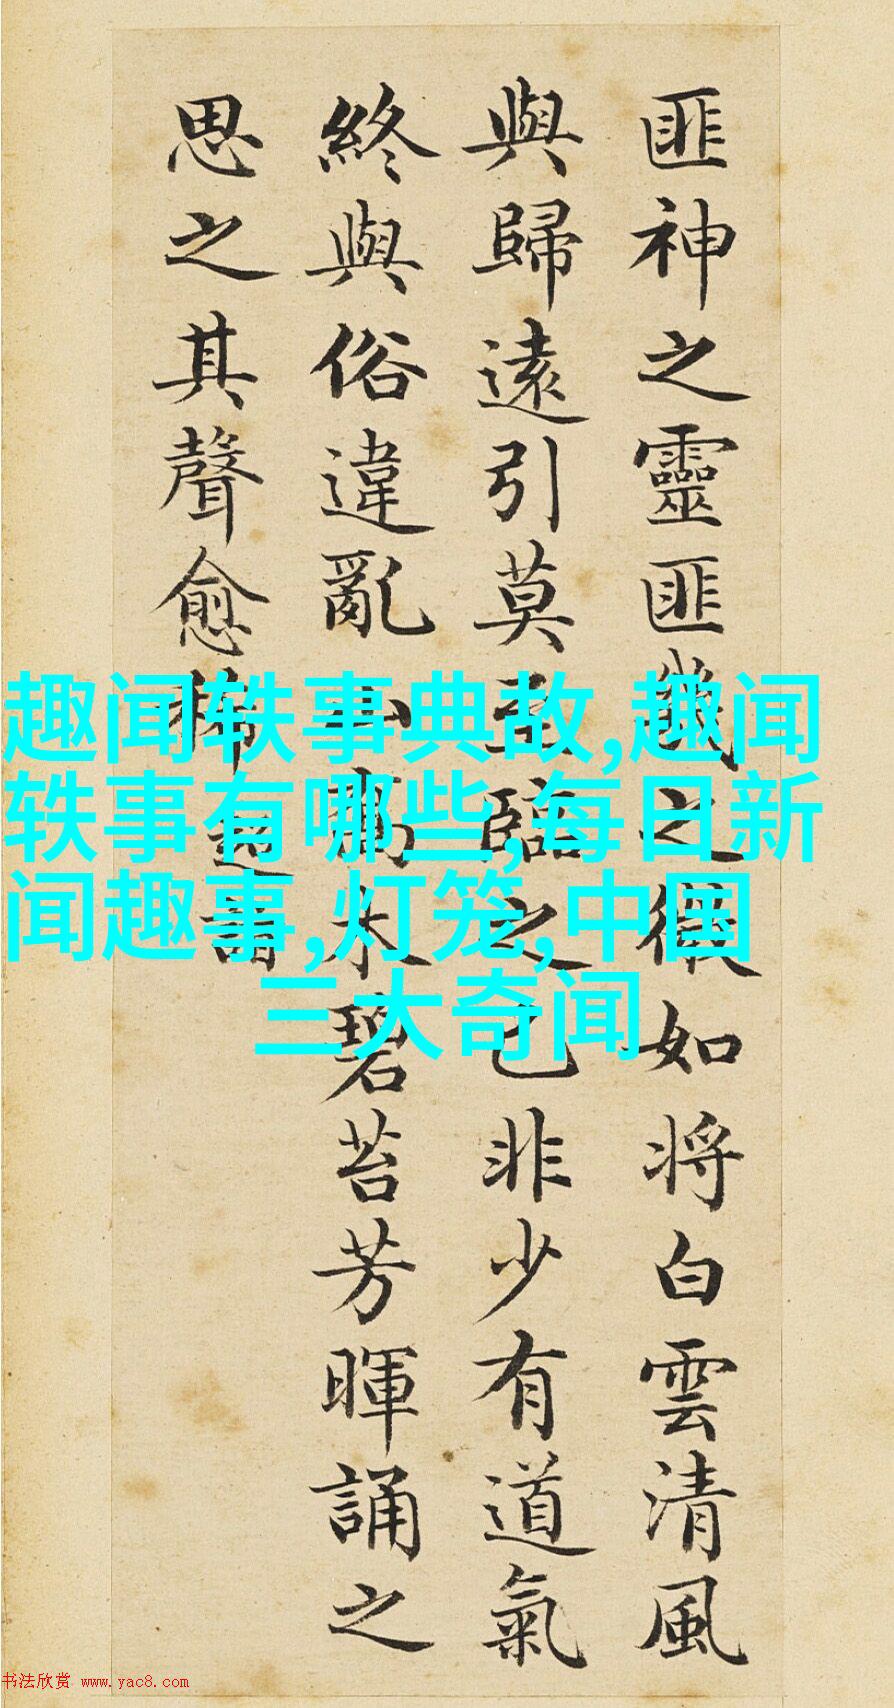 匪神之靈匪幾之微如将白雲清風
與歸遠引莫至臨之已非少有道氣
終與俗違亂山喬木碧苔芳暉誦之
思之其聲愈稀超詣
趣闻轶事典故,趣闻
轶事有哪些,每日新
闻趣事,灯笼,中国
三大奇闻
书法欣赏 www.yac8.com